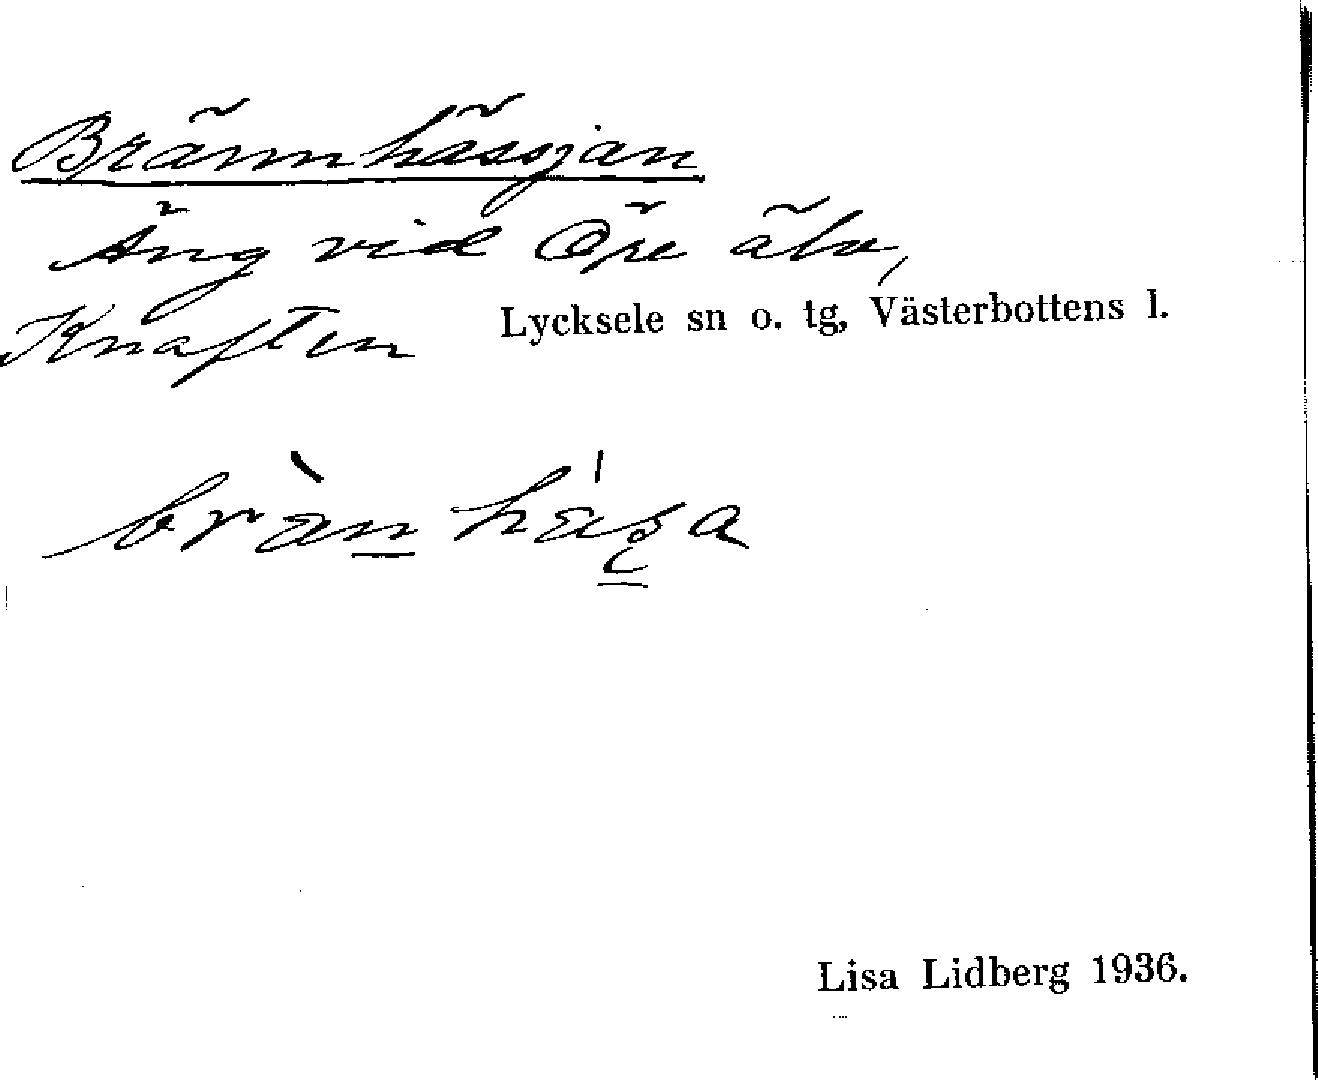 Brännhässjan
Äng vid Öre älv,
Knaften Lycksele sn o. tg, Västerbottens l.
Lisa Lidberg 1936.